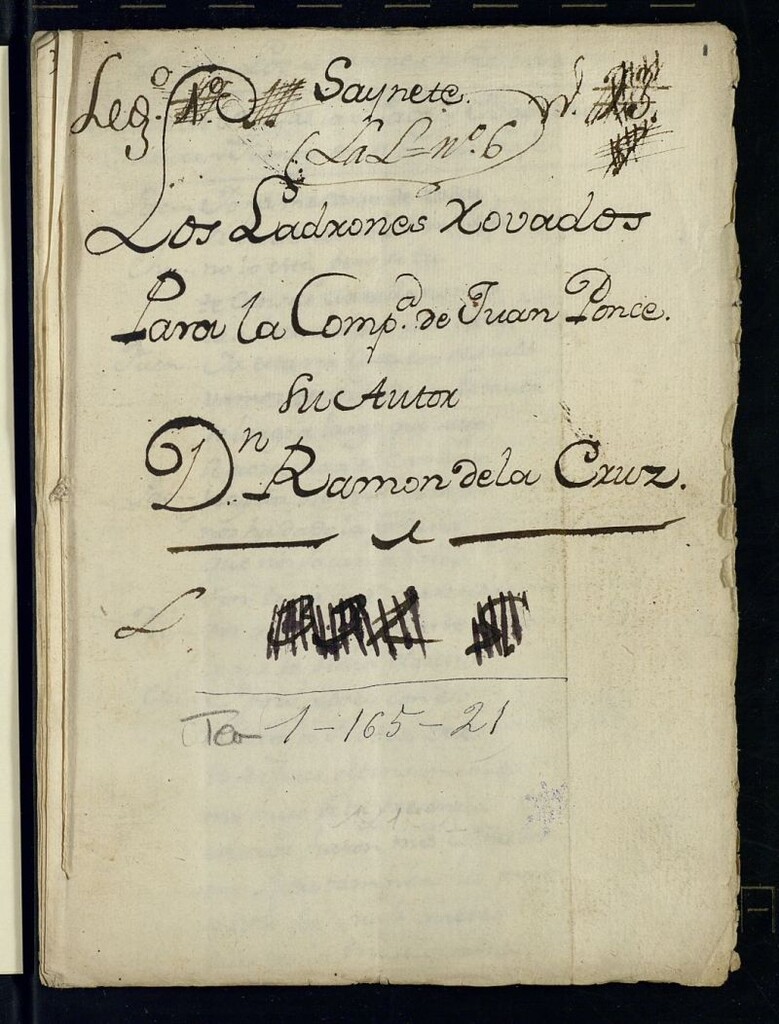 Leg.º 1º Saynete. nº.
(La L=nº.6)
Los Ladrones Rovados
Para la Comp.ª de Juan Ponce.
Su Autor
Dn. Ramon de la Cruz.
L
Tea 1-165-21
1